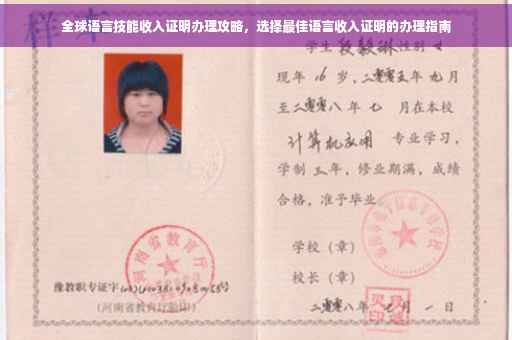 全球语言技能收入证明办理攻略，选择最佳语言收入证明的办理指南
样本
学生段毅琳性别女
现年16岁，二零零五年九月
至二零零八年七 月在本校
计算机应用 专业学习，
学制三年，修业期满，成绩
合格，准予毕业
学校（章）
校长（章）
二零零八年 月一日
河南省教育厅
豫教职专证字
（河南省教育厅验印）